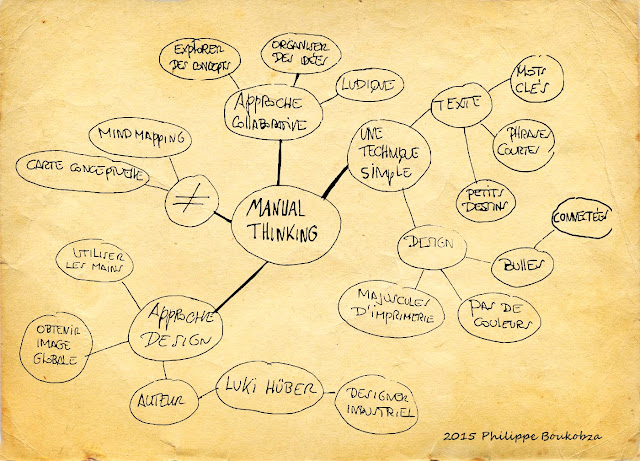 EXPLORER
DES CONCEPTS
ORGANISER
DES IDÉES
LUDIQUE
APPROCHE
COLLABORATIVE
MINDMAPPING
CARTE CONCEPTUELLE
≠
MANUAL
THINKING
UNE
TECHNIQUE
SIMPLE
TEXTE
MOTS
CLÉS
PHRASES
COURTES
PETITS
DESSINS
DESIGN
BULLES
CONNECTÉES
MAJUSCULES
D'IMPRIMERIE
PAS DE
COULEURS
UTILISER
LES MAINS
APPROCHE
DESIGN
OBTENIR
IMAGE
GLOBALE
AUTEUR
LUKI HÜBER
DESIGNER
INDUSTRIEL
2015 Philippe Boukobza